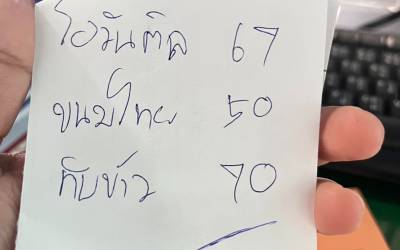 โอวันติล 67
ขนมไทย 50
กับข้าว 70